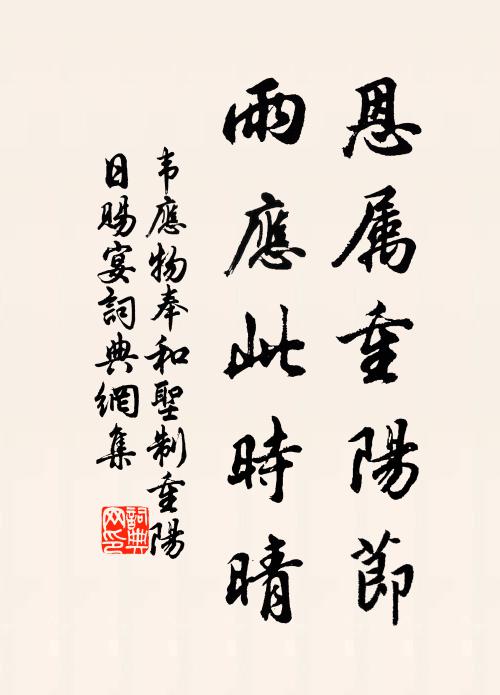 恩属重陽節
雨應此時晴
韦應物奉和聖制重陽
日賜宴詞典網集
詞典
网印